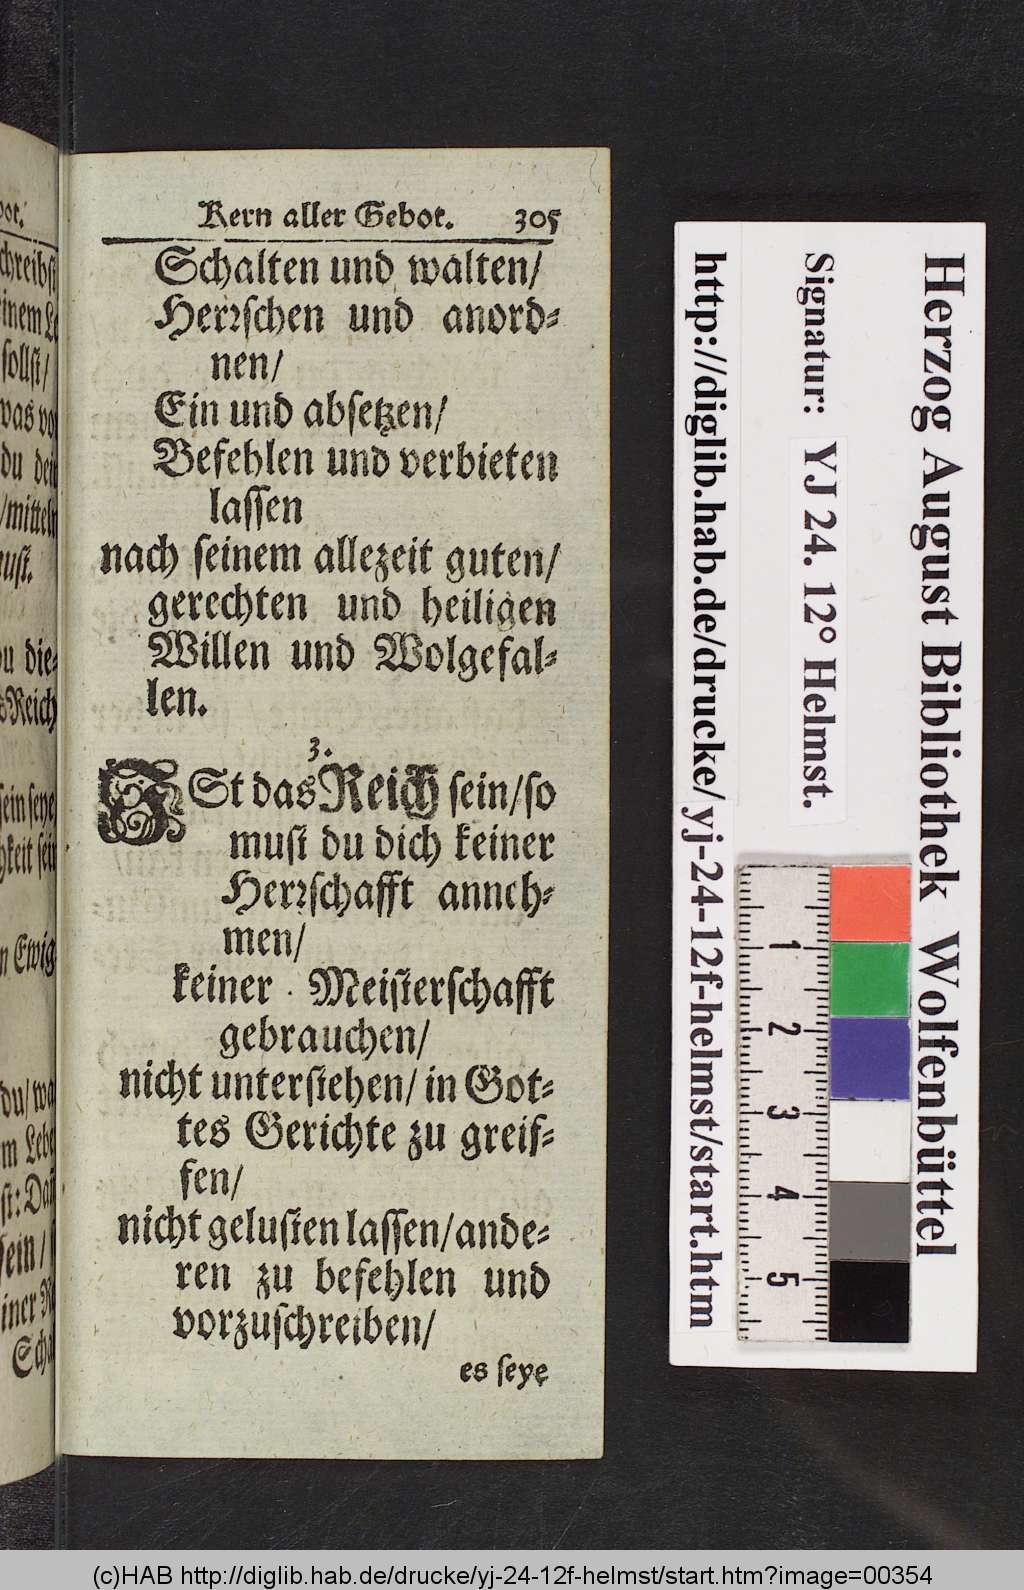 Kern aller Gebot. 305
Schalten und walten/
Herꝛschen und anord⸗
nen/
Ein und absetzen/
Befehlen und verbieten
lassen
nach seinem allezeit guten/
gerechten und heiligen
Willen und Wolgefal⸗
len.
3.
ISt das Reich sein/so
must du dich keiner
Herꝛschafft anneh⸗
men/
keiner Meisterschafft
gebrauchen/
nicht unterstehen/ in Got⸗
tes Gerichte zu greif⸗
fen/
nicht gelusten lassen/ande⸗
ren zu befehlen und
vorzuschreiben/
es seye
Herzog August Bibliothek Wolfenbüttel
Signatur: YJ 24. 12° Helmst.
http://diglib.hab.de/drucke/yj-24-12f-helmst/start.htm
1
2
3
4
5
(c)HAB http://diglib.hab.de/drucke/yj-24-12f-helmst/start.htm?image=00354